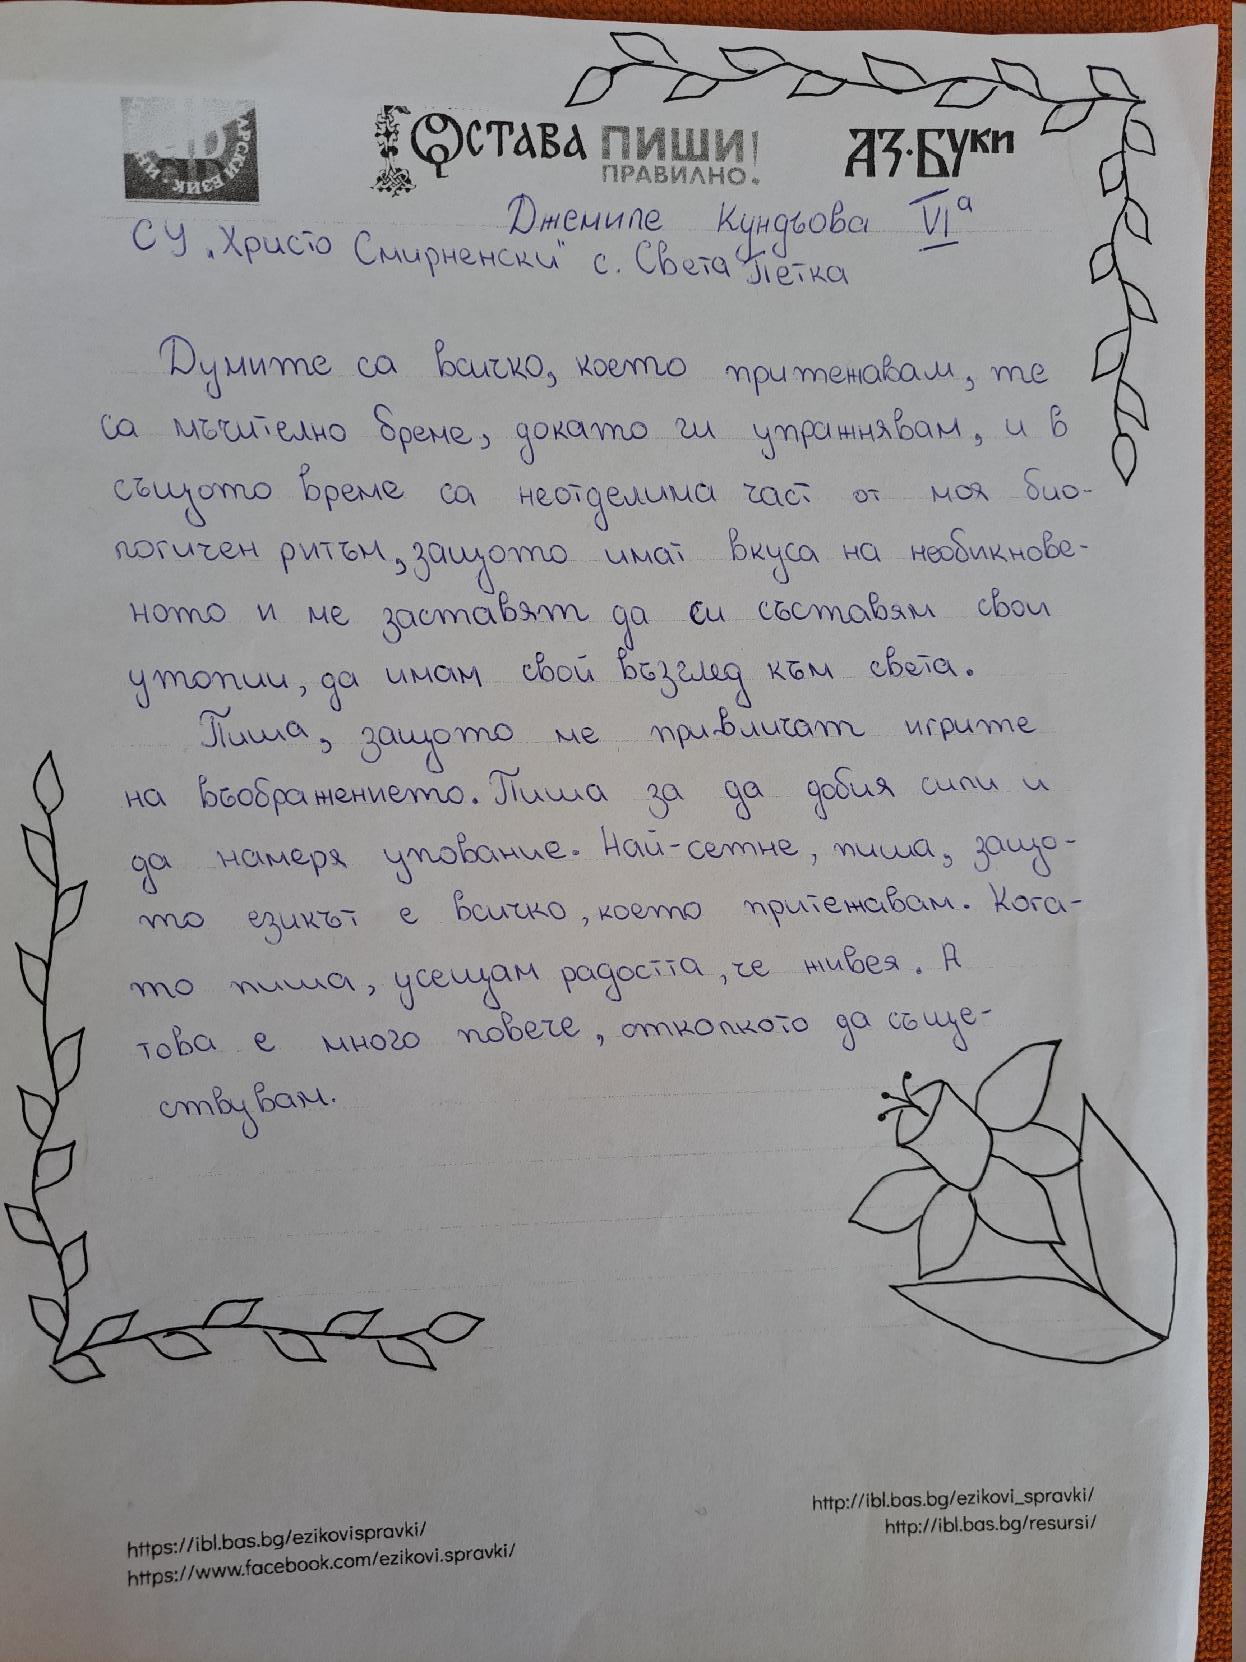 ГОСТАВА ПИШИ! АЗ·БУКИ
ПРАВИЛНО.
Джемиле Кундьова VIа
СУ „Христо Смирненски" с. Света Петка
Думите са всичко, което притежавам, те
са мъчително бреме, докато ги упражнявам, и в
същото време са неотделима част от моя био-
логичен ритъм, защото имат вкуса на необикнове-
ното и ме заставят да си съставям свои
утопии, да имам свой възглед към света.
Пиша, защото ме привличат игрите
на въображението. Пиша за да добия сили и
да намеря упование. Най-сетне, пиша, защо-
то езикът е всичко, което притежавам. Кога-
то пиша, усещам радостта, че живея. А
това е много повече, отколкото да съще-
ствувам.
http://ibl.bas.bg/ezikovi_spravki/
http://ibl.bas.bg/resursi/
https://ibl.bas.bg/ezikovispravki/
https://www.facebook.com/ezikovi.spravki/